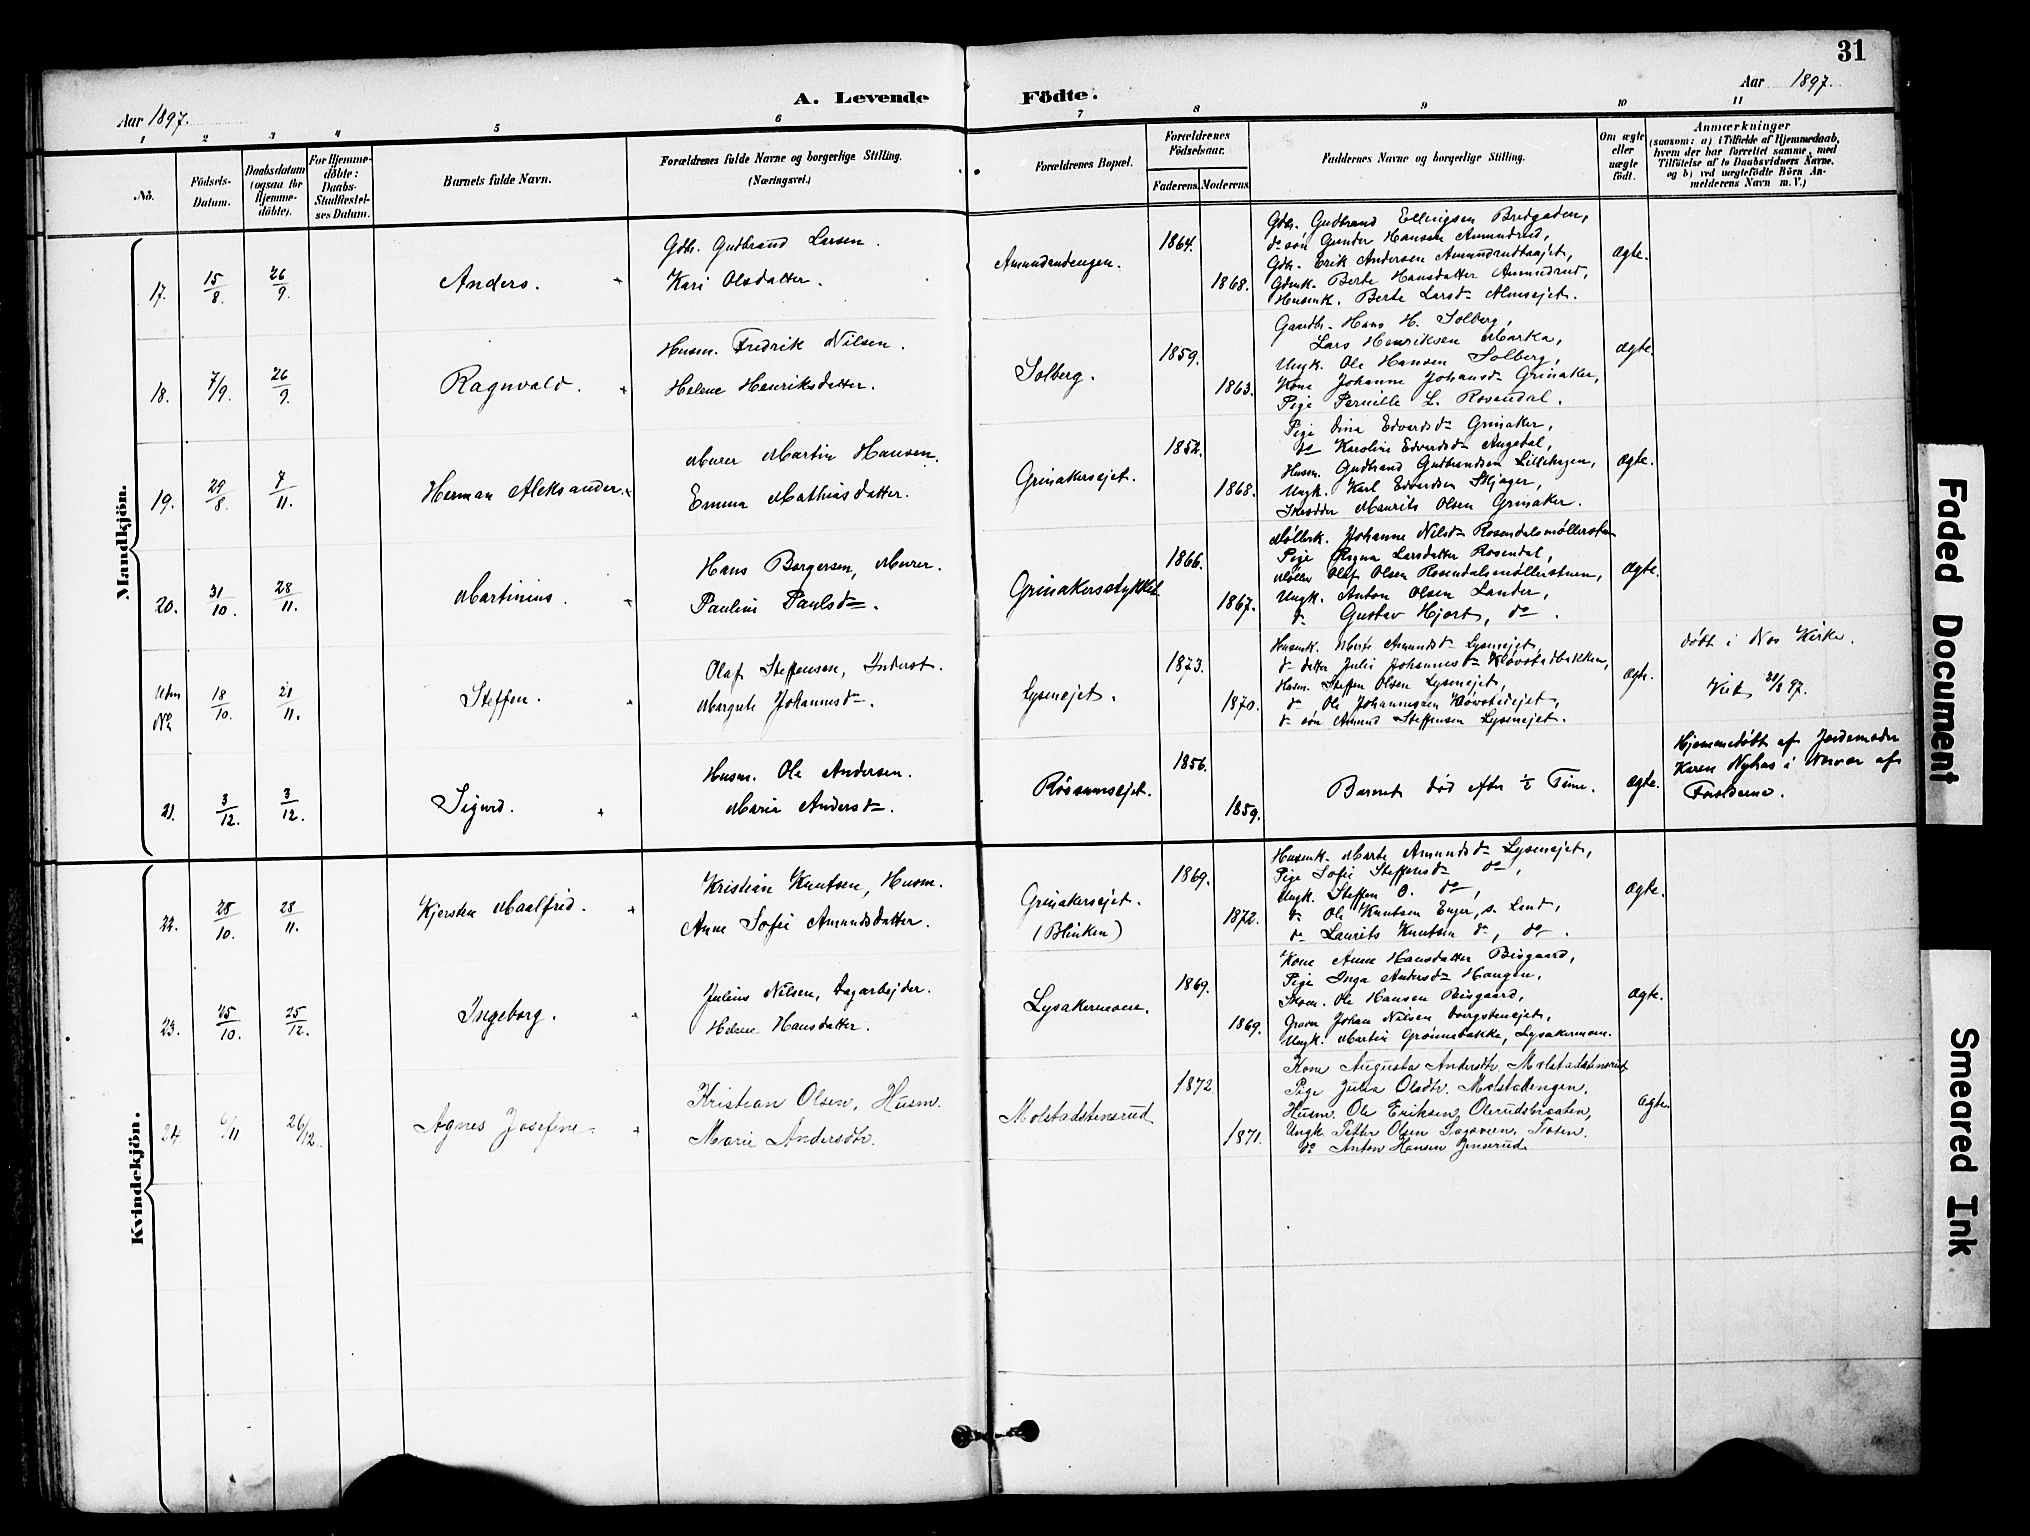 31
Aar 1897.
A. Levende Födte.
Aar 1897.
1 2 3 4 5 6 7 8 9 10 11
No.
Födsels-Datum.
Daabsdatum (ogsaa for Hjemme-döbte).
For Hjemme-döbte: Daabs-Stadfæstel-ses Datum.
Barnets fulde Navn.
Forældrenes fulde Navne og borgerlige Stilling.
(Næringsvei.)
Forældrenes Bopæl.
Forældrenes Födselsaar.
Faderens. Moderens.
Faddernes Navne og borgerlige Stilling.
Om ægte eller uægte födt.
Anmærkninger
(saasom: a) i Tilfælde af Hjemmedaab,
hvem der har forrettet samme, med
Tilföielse af to Daabsvidners Navne.
og b) ved uægtefödte Börn An-
melderens Navn m. V.)
Mandkjön.
17. 15/8 26/9 Anders.
Gdbr. Gudbrand Larsen.
Kari Olsdatter.
Amundrudengen. 1864. 1868.
Gdbr. Gudbrand Ellingsen Bredgaden,
do sön Gunder Hansen Amundrud,
Gdbr. Erik Andersen Amundrudhaajet,
Gdmk. Berte Hansdatter Amundrud,
Husmk. Berte Larsd Almsejet.
ægte.
18. 7/9. 26/9. Ragnvald.
Husm. Fredrik Nilsen.
Helene Henriksdatter.
Solberg. 1859. 1863.
Gaardbr. Hans H. Solberg,
Lars Henriksen Marka,
Ungk. Ole Hansen Solberg,
Kone Johanne Johansd Grinaker,
Pige Pernille L. Rosendal.
ægte.
19. 29/8. 7/11. Herman Aleksander.
Murer Martin Hansen.
Emma Mathiasdatter.
Grinakersejet. 1852. 1868.
Pige Dina Edvardsd Grinaker,
do Karoline Edvardsd Augedal,
Husm. Gudbrand Gudbrandsen Lillehagen,
Ungk. Karl Edvardsen Skjager,
Skrædder Maurits Olsen Grinaker.
ægte.
20. 31/10. 28/11. Martinius.
Hans Borgersen, Murer.
Pauline Paulsd.
Grinakersstykket 1866. 1867.
Möllerk. Johanne Nilsd Rosendalsmöllerstuen
Pige Ragna Larsdatter Rosendal,
Möller Olaf Olsen Rosendalsmöllerstuen,
Ungk. Anton Olsen Lander,
do Gustav Hjort, do.
ægte.
Uden No 18/10. 21/11. Steffen.
Olaf Steffensen, Inderst.
Margrete Johannesd.
Lysenejet. 1873. 1870.
Husmk. Marte Amundsd Lysenejet,
do datter Julie Johannesd Klövstadbakken,
Husm. Steffen Olsen Lysenejet,
do Ole Johannessen Klövstadejet,
do sön Amund Steffensen Lysenejet.
ægte.
Döbt i Nes Kirke.
21. 3/12. 3/12. Sigurd.
Husm. Ole Andersen.
Maria Andersd.
Rösumsejet. 1856. 1859.
Barnet död efter ½ Time.
ægte.
Hjemmedöbt af Jordemoder
Karen Nyhus i Nærvær af
Forældrene.
Kvindekjön.
22. 28/10. 28/11. Kjersten Maalfrid.
Kristian Knutsen, Husm.
Anne Sofie Amundsdatter.
Grinakersejet.
(Blinken)
1869. 1872.
Husmk. Marte Amundsd Lysenejet,
Pige Sofie Steffensd do,
Ungk. Steffen O. do,
do Ole Knutsen Enger, s. Land,
do Laurits Knutsen do, do.
ægte.
23. 25/10. 25/12. Ingeborg.
Julius Nilsen, Dagarbejder.
Helene Hansdatter.
Lysakermoen. 1869. 1869.
Kone Anne Hansdatter Bisgaard,
Pige Inga Andersd Haugen,
Skom. Ole Hansen Bisgaard,
Graver Johan Nilsen
Ungk. Martin Grönnebakke, Lysakermoen.
ægte.
24 6/11 26/12. Agnes Josefine
Kristian Olsen, Husm.
Marie Andersdtr.
Molstadstensrud 1872 1871.
Kone Augusta Andersdtr. Molstadstensrud
Pige Julia Olsdtr. Molstadengen,
Husm. Ole Eriksen Olerudsbraaten,
Ungk. Petter Olsen Sagvien, Toten.
do Anton Hansen Jensrud
ægte.
Faded Document
Smeared Ink